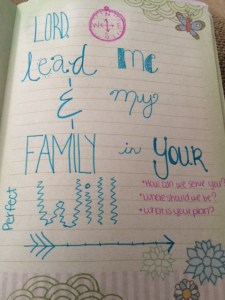 LORD,
lead me
& my
FAMILY in YOUR
Perfect Will
• How can we serve you?
• Where should we be?
• What is your plan?